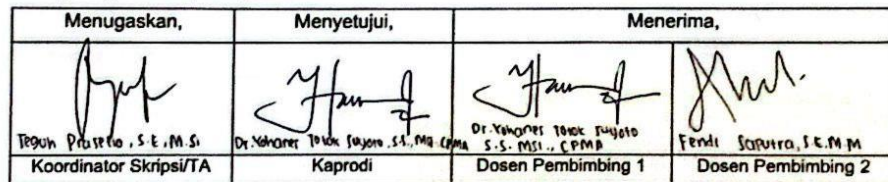 Menugaskan,
Menyetujui,
Menerima,
Teguh Prasetio, S.E, M.Si
Dr. Yohanes Totok Suyoto, S.S., MSi. CPMA
Dr. Yohanes Totok Suyoto
S.S. MSI., CPMA
Fendi Saputra, S.E. M.M
Koordinator Skripsi/TA
Kaprodi
Dosen Pembimbing 1
Dosen Pembimbing 2